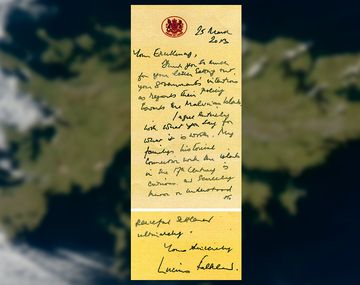 25 March
2013
Your Excellency,
Thank you so much
for your letter setting out
your Government's intentions
as regards their Policy
towards the Malvinas Islands
I agree entirely
with what you say for
what it is worth. My
family's historical
connection with the islands
in the 17th Century is
curious and scarcely
known or understood
Peaceful Settlement
ultimately.
Yours Sincerely
Lucius Falkland.